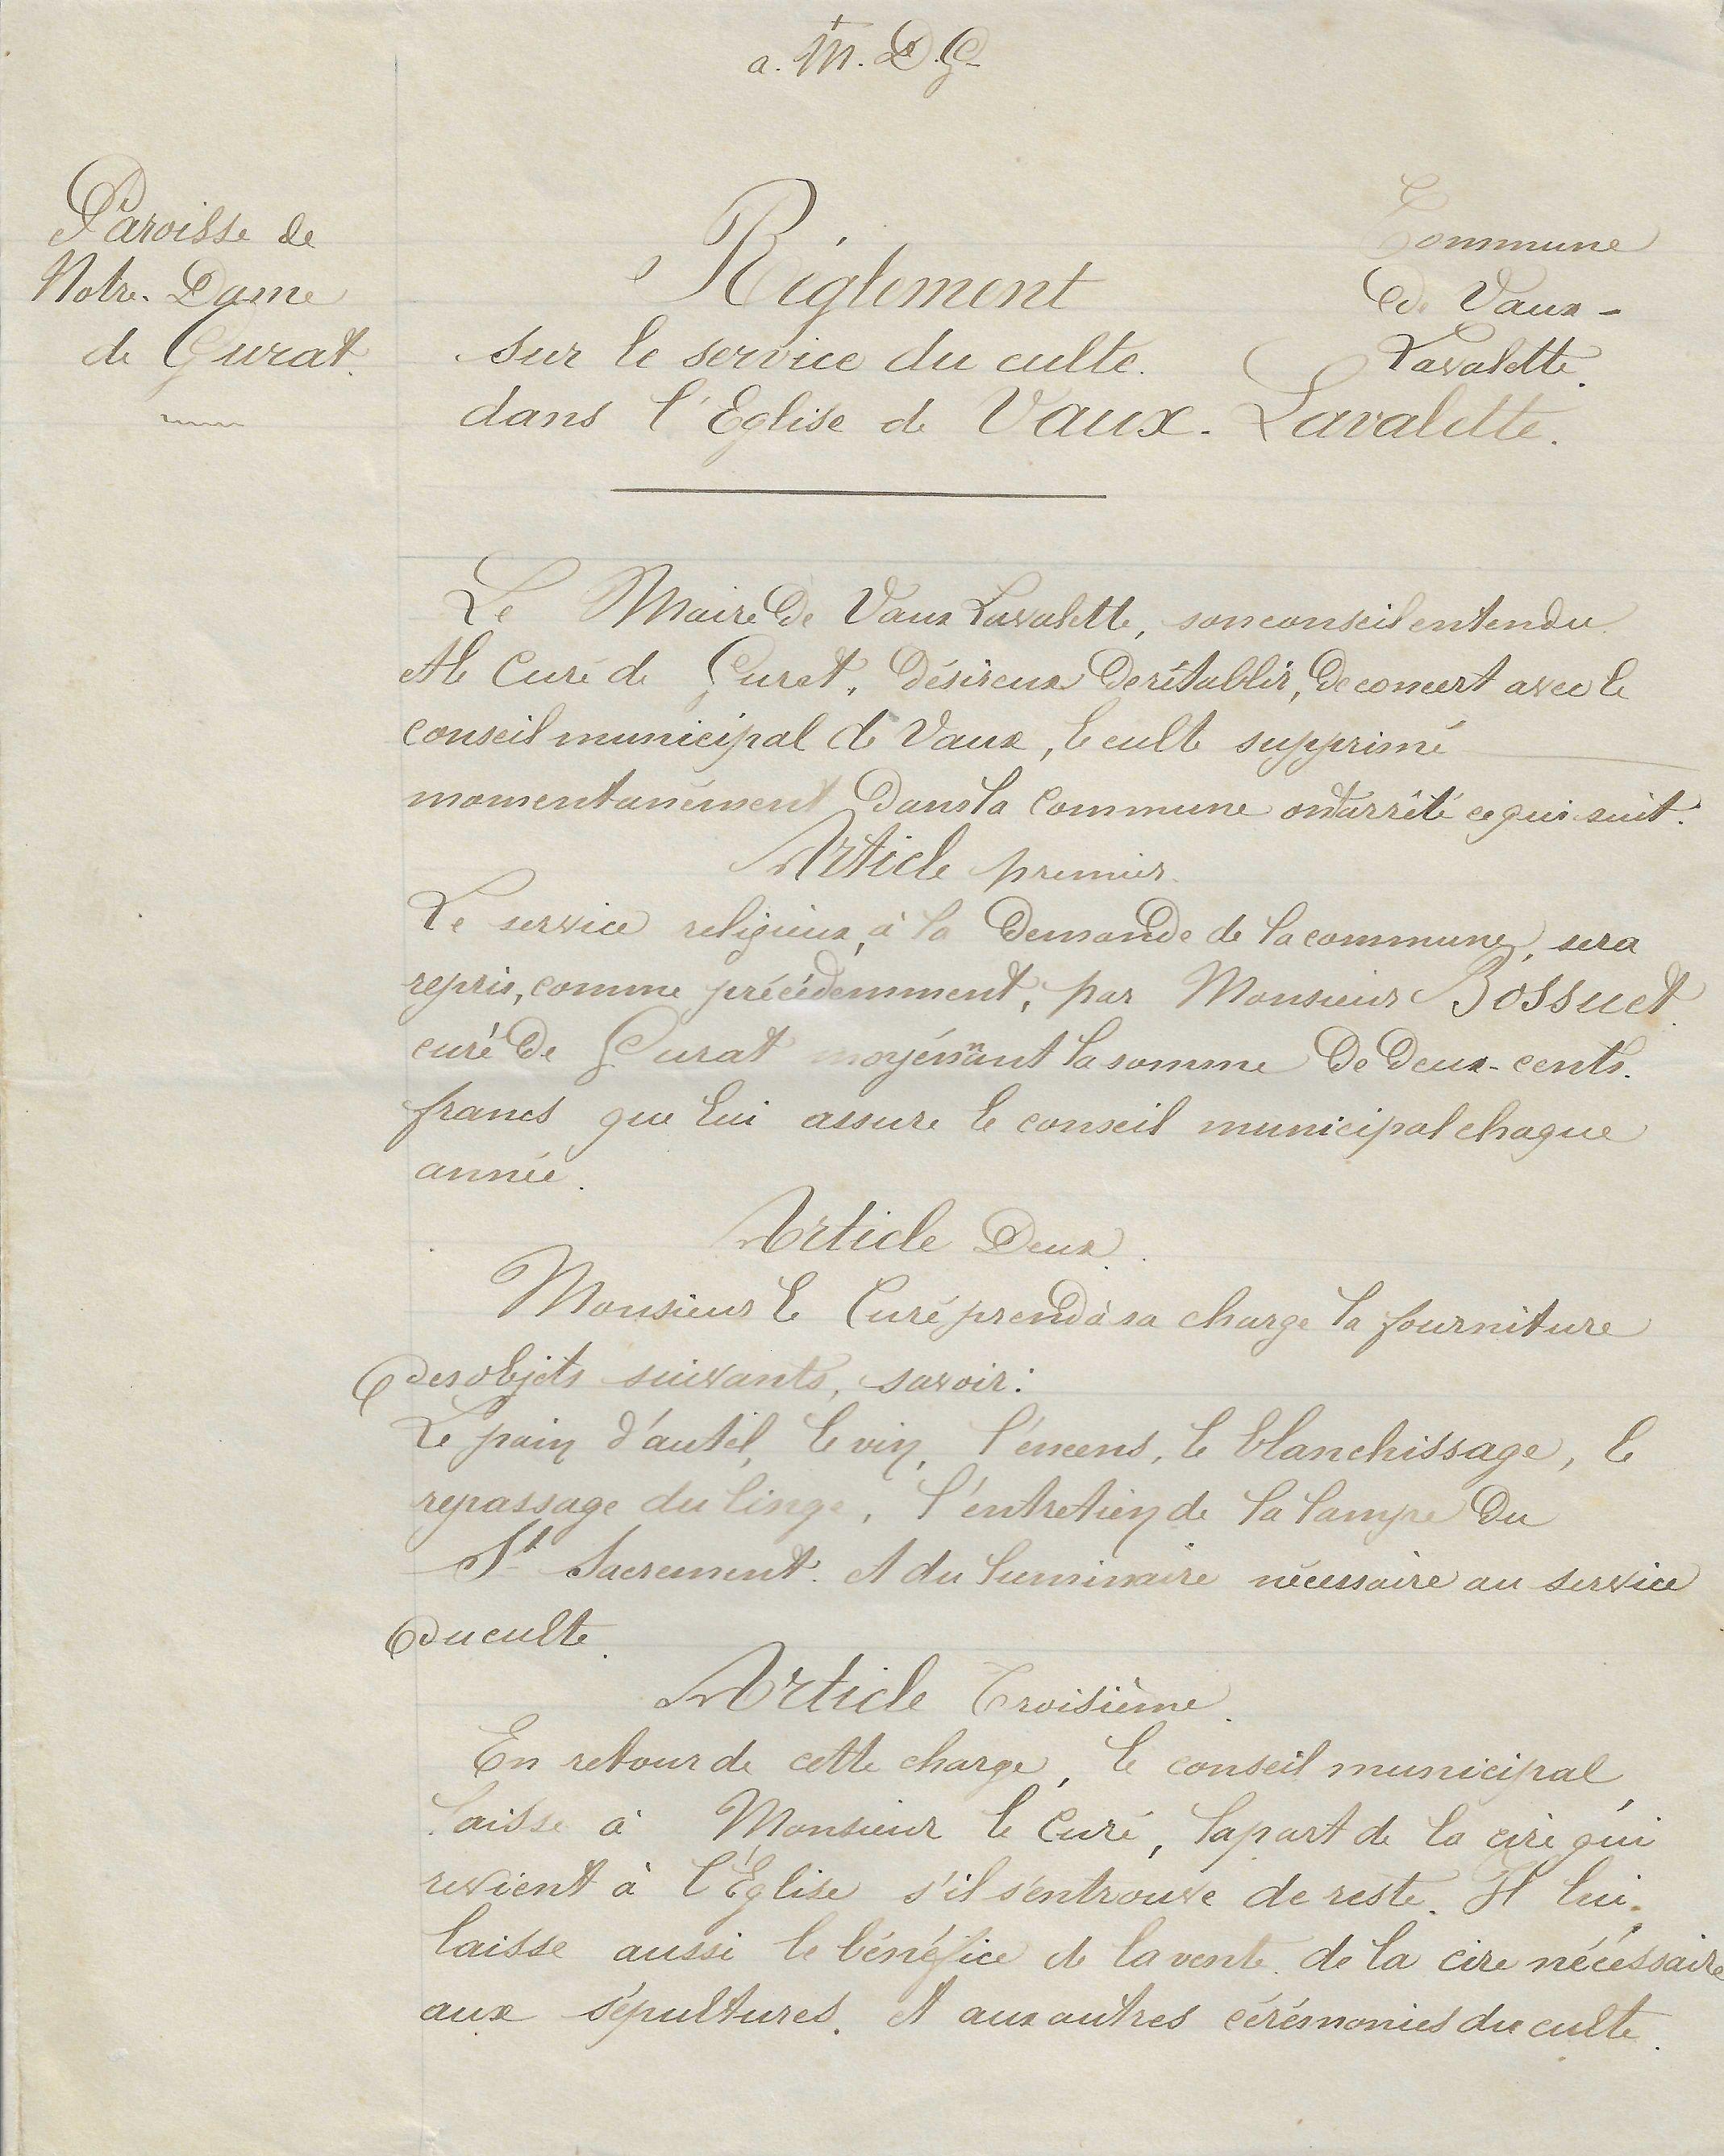 a. M. D. G.
Paroisse de
Notre-Dame
de Gurat.
Commune
de Vaux-
Lavalette.
Réglement
sur le service du culte.
dans l'Eglise de Vaux-Lavalette.
Le Maire de Vaux Lavalette, son conseil entendu
et le Curé de Gurat, désireux de rétablir, de concert avec le
conseil municipal de Vaux, le culte supprimé
momentanément dans la commune ont arrêté ce qui suit:
Article premier.
Le service religieux, à la demande de la commune, sera
repris, comme précédemment, par Monsieur Bossuet
curé de Gurat moyénnant la somme de deux-cents.
francs que lui assure le conseil municipal chaque
année.
Article Deux.
Monsieur le Curé prend à sa charge la fourniture
des objets suivants, savoir:
Le pain d'autel, le vin, l'encens, le blanchissage, le
repassage du linge, l'entretien de la lampe du
St Sacrement. et du luminaire nécessaire au service
du culte.
Article Troisième.
En retour de cette charge, le conseil municipal,
laisse à Monsieur le Curé, la part de la cire qui
revient à l'Église s'il s'en trouve de reste. Il lui.
laisse aussi le bénéfice de la vente. de la cire nécessaire
aux sépultures. et aux autres cérémonies du culte.